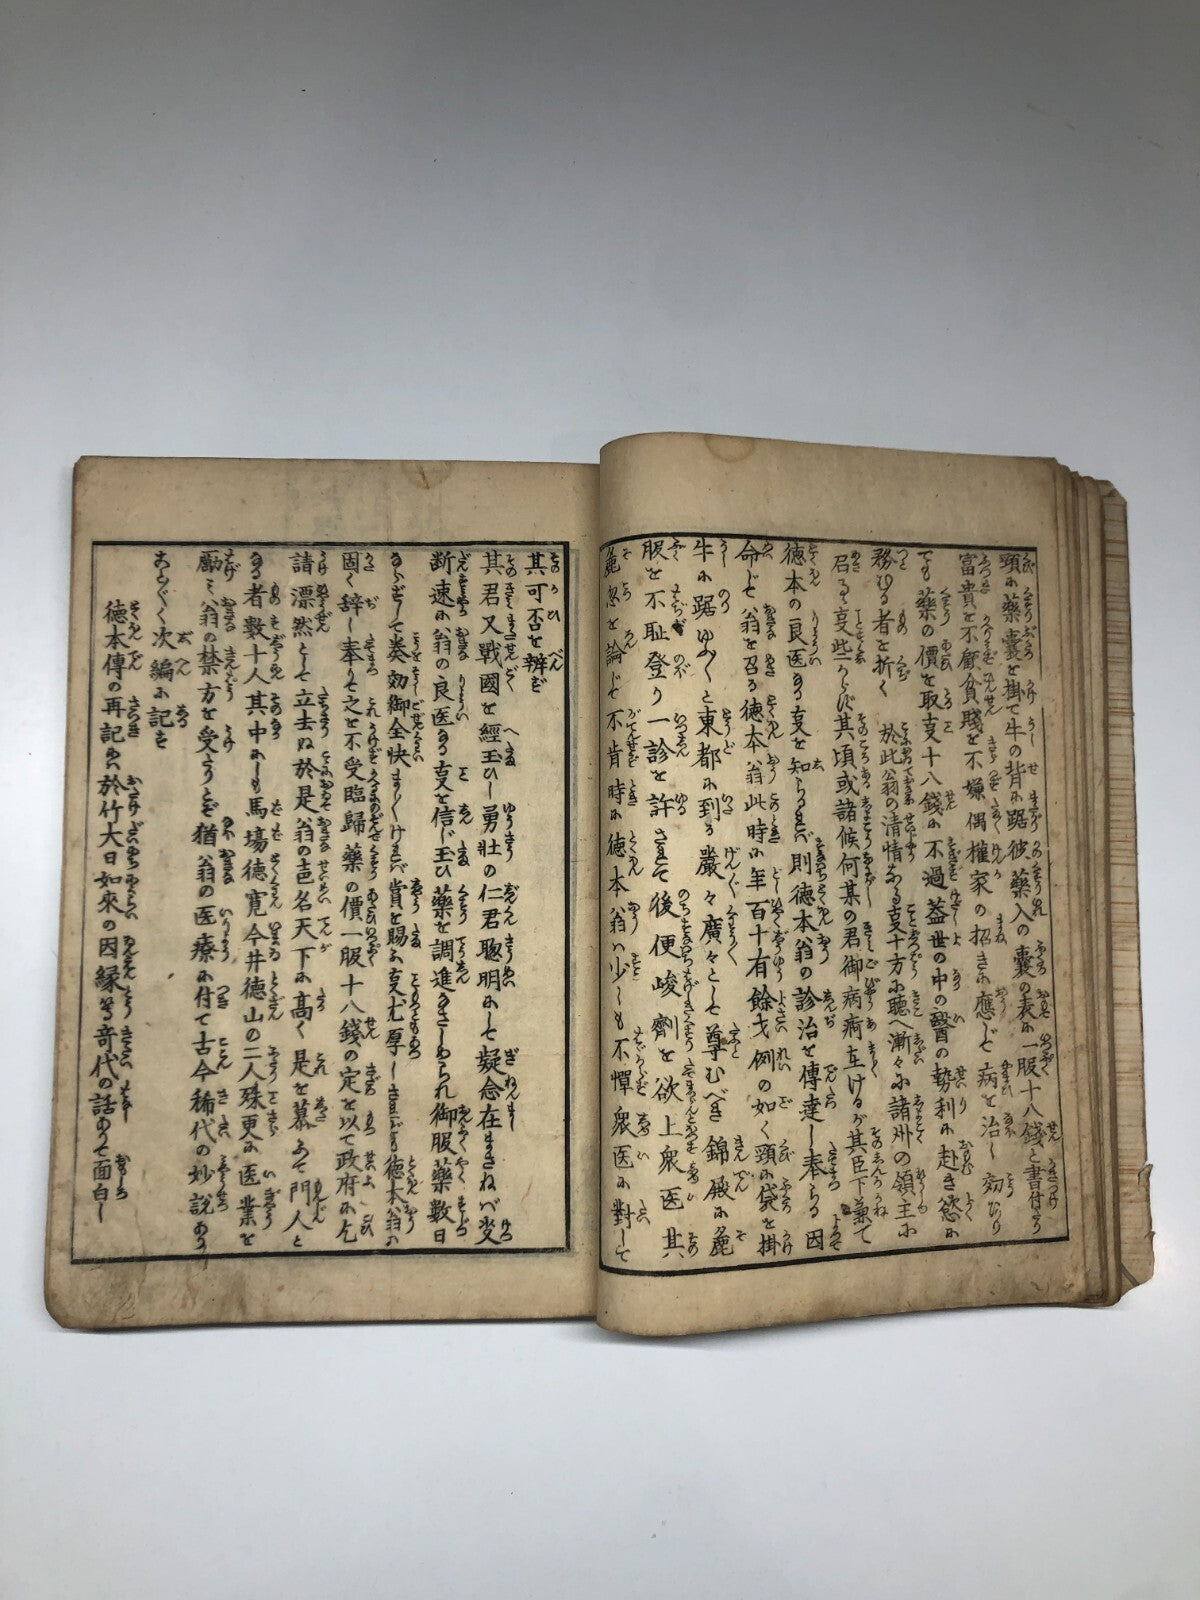 頸に藥嚢を掛て牛の背に踞彼藥入の嚢の表に一服十八錢と書付たり
富貴を不願貧賤を不嫌偶權家の招きに應じて病を治し効あり
ても藥の價を取事十八錢に不過蓋世の中の醫の勢利に赴き慾に
務める者を折く於此翁の清情ある事十方に聴へ漸々に諸州の領主に
召るゝ事些からず其頃或諸候何某の君御病痾在けるが其臣下兼て
徳本の良医なる事を知らるれば則徳本翁の診治を傳達し奉らる因
命じて翁を召る徳本翁此時に年百十有餘才例の如く頸に袋を掛
牛に踞ゆらゆらと東都に到る嚴々廣々として尊むべき錦殿に麁
服を不恥登り一診を許されて後便峻劑を欲上衆医其
麁忽を論じて不肯時に徳本翁ハ少しも不憚衆医に對して
其可否を辨ず
其君又戰國を經玉ひし勇壯の仁君聡明にして疑念在まさねバ愛
断速に翁の良医なる事を信じ玉ひ藥を調進なさしめられ御服藥数日
ならずして奏効御全快ましましければ賞を賜ふ事尤厚しされども徳本翁ハ
固く辞し奉りて之を不受臨歸藥の價一服十八錢の定を以て政府に乞
請漂然として立去ぬ於是翁の芭名天下に高く是を慕ふて門人と
なる者數十人其中にも馬塲徳寛今井徳山の二人殊更に医業を
勵ミ翁の禁方を受たりとぞ猶翁の医療に付て古今稀代の妙説あり
ことごとく次編に記を
徳本傳の再記にハ於竹大日如來の因縁等奇代の話ありて面白し